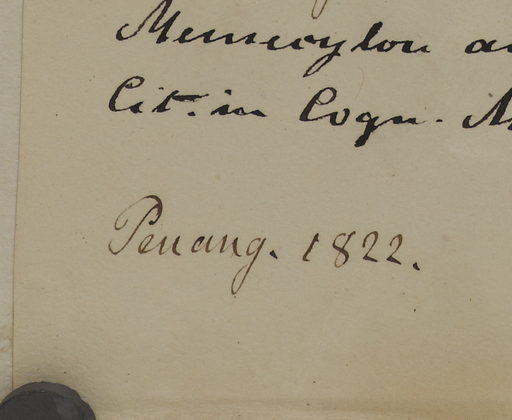 Memecylon
Cit. in Cogn.
Penang. 1822.